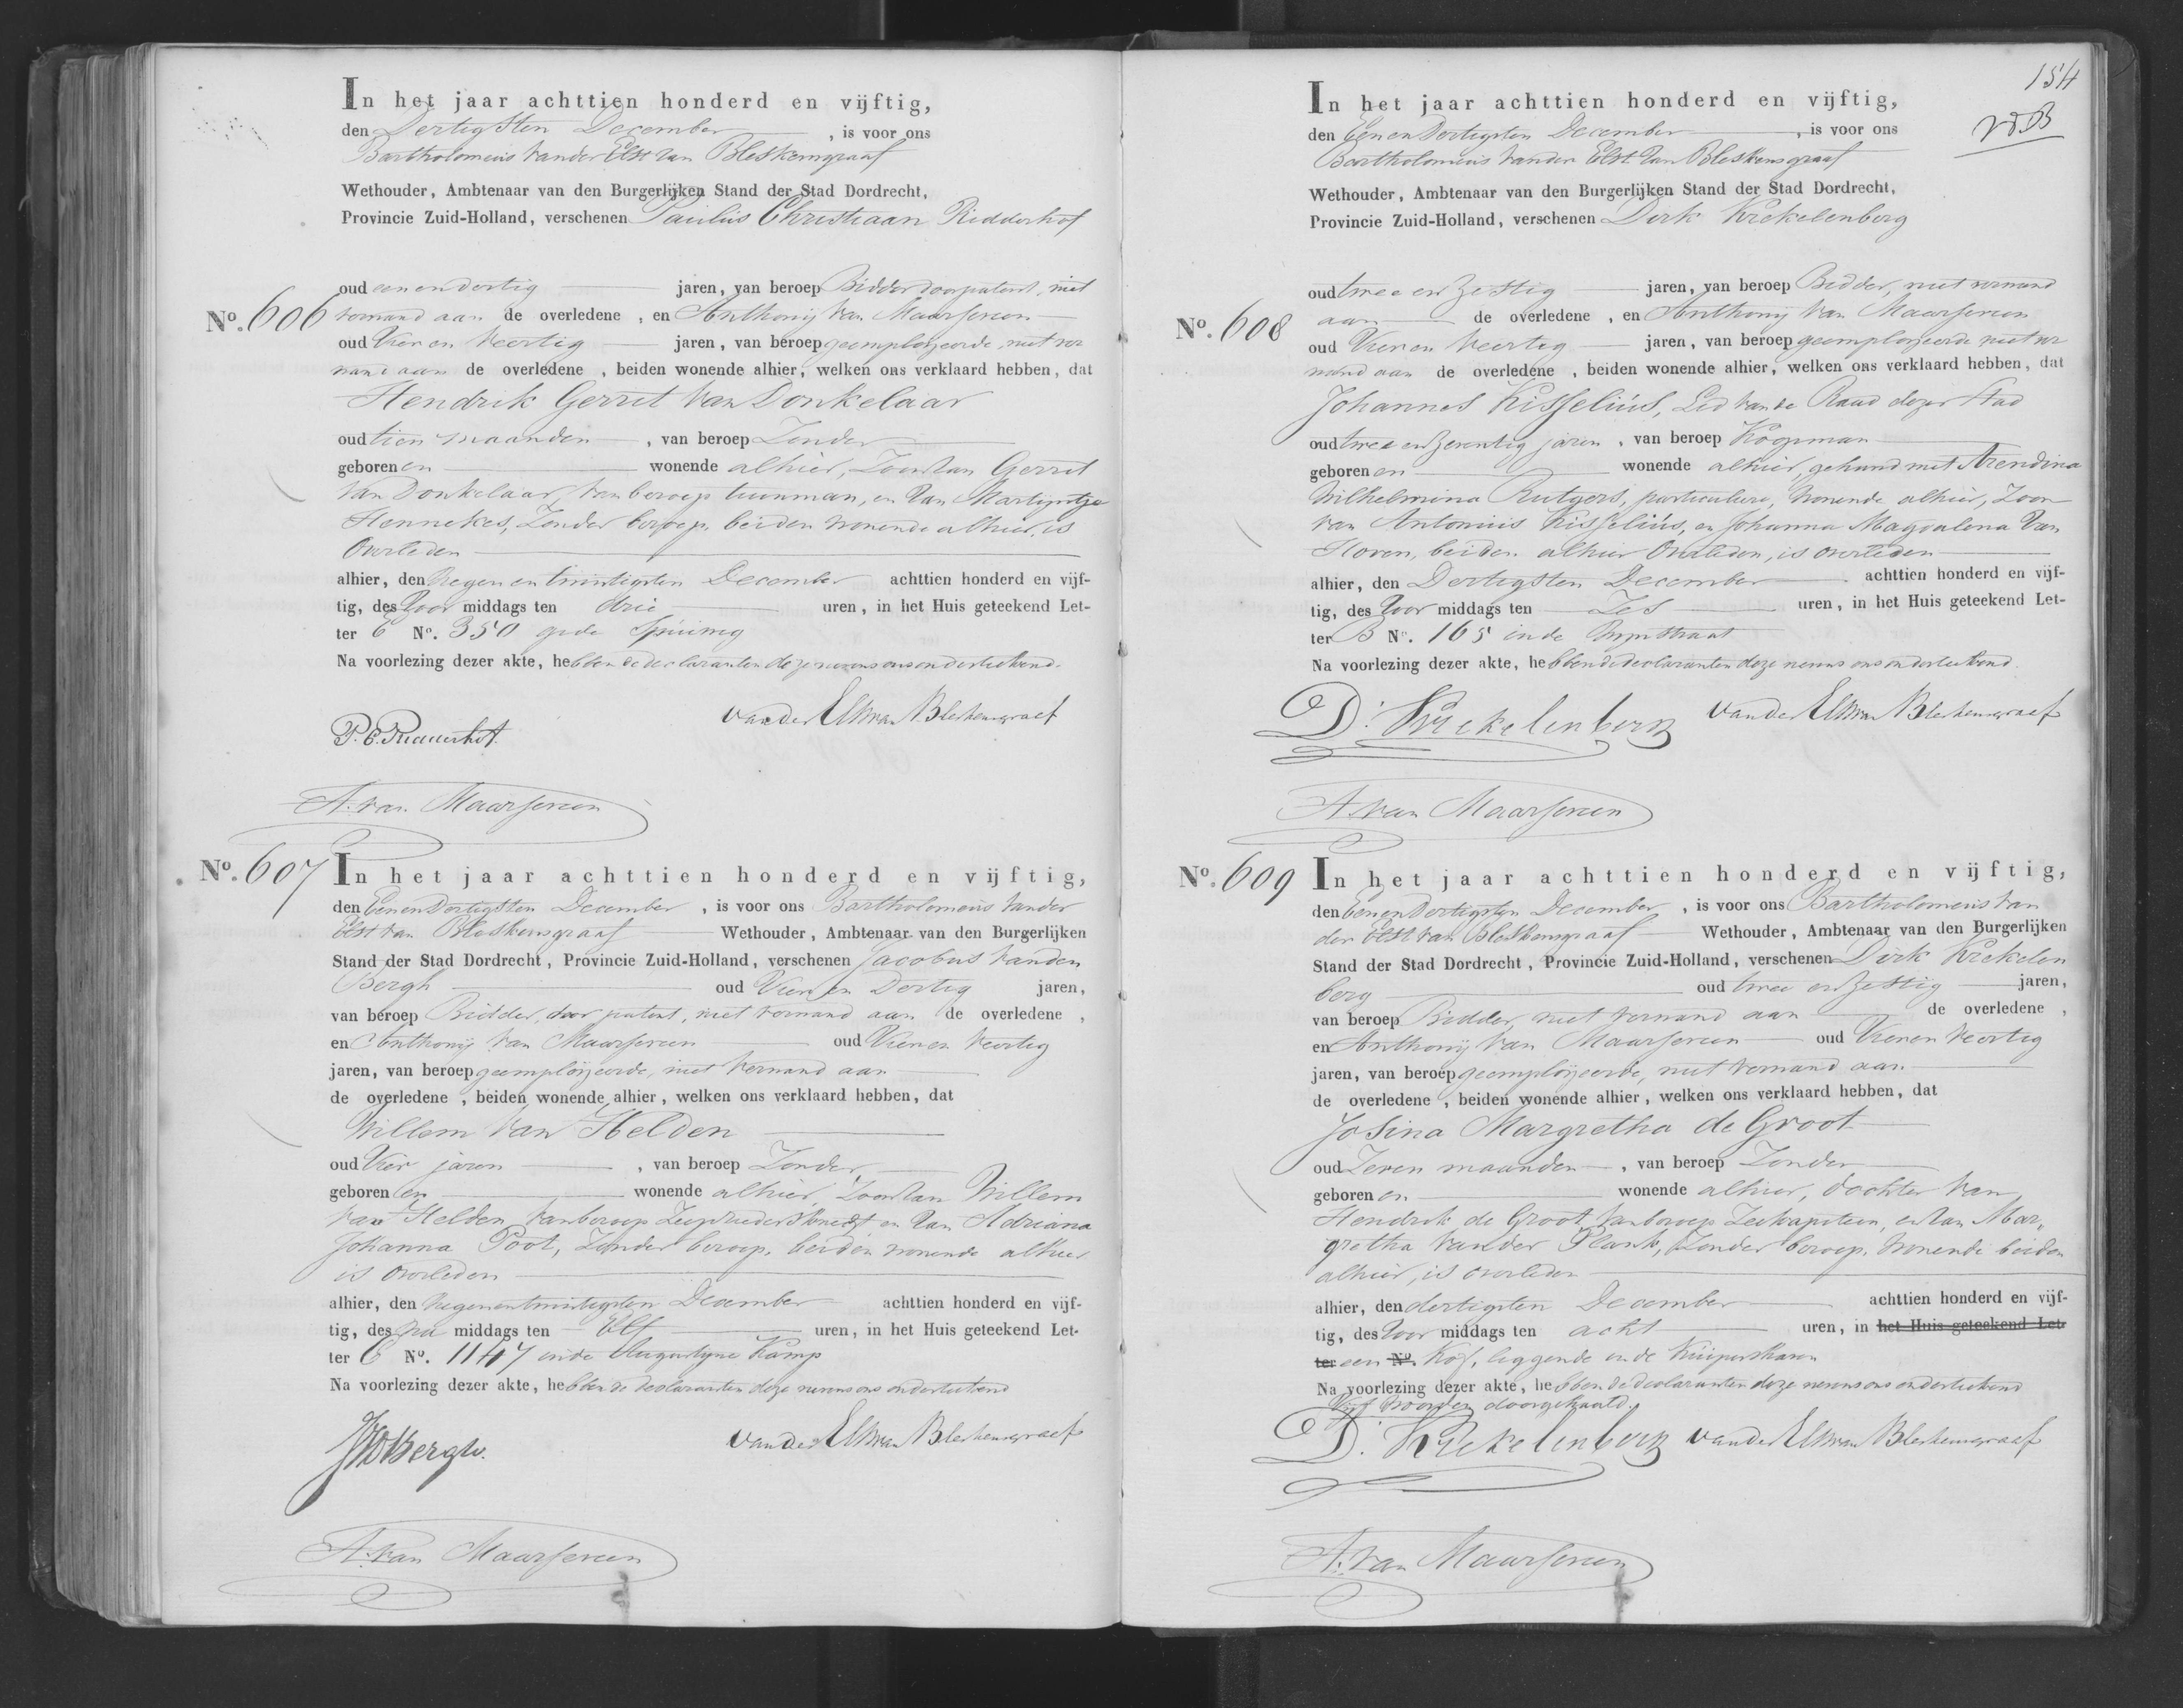 In het jaar achttien honderd en vijftig,
den Dertigsten December , is voor ons
Bartholomeus van der Elst van Bleskensgraaf
Wethouder, Ambtenaar van den Burgerlijken Stand der Stad Dordrecht,
Provincie Zuid-Holland, verschenen Paulus Christiaan Ridderhof
oud een en dertig jaren, van beroep Bidder door patent, niet
No. 606 vernand aan de overledene , en Anthonij van Maarseveen
oud Vier en Veertig jaren, van beroep geemploijeerde, niet ver
nand aan de overledene , beiden wonende alhier, welken ons verklaard hebben, dat
Hendrik Gerrit van Donkelaar
oud tien maanden , van beroep Zonder
geboren en wonende alhier, Zoon van Gerrit
van Donkelaar, van beroep tuinman, en van Martijntje
Hennekes, Zonder beroep, beiden wonende alhier, is
Overleden
alhier, den Negen en twintigsten December achttien honderd en vijf-
tig, des Voor middags ten drie uren, in het Huis geteekend Let-
ter C No. 350 op de Spuiweg
Na voorlezing dezer akte, hebben de declaranten deze nevens ons onderteekend.
van der Elst van Bleskensgraaf
P. C. Ridderhof.
A. van Maarseveen
No. 607 In het jaar achttien honderd en vijftig,
den Een en Dertigsten December , is voor ons Bartholomeus van der
Elst van Bleskensgraaf Wethouder, Ambtenaar van den Burgerlijken
Stand der Stad Dordrecht, Provincie Zuid-Holland, verschenen Jacobus van den
Bergh oud Vier en Dertig jaren,
van beroep Bidder, door patent, niet vernand aan de overledene ,
en Anthonij van Maarseveen oud Vier en Veertig
jaren, van beroep geemploijeerde, niet vernand aan
de overledene , beiden wonende alhier, welken ons verklaard hebben, dat
Willem van Helden
oud Vier jaren , van beroep Zonder
geboren en wonende alhier, Zoon van Willem
van Helden, van beroep Zeepzieders knecht en van Adriana
Johanna Poot, Zonder beroep, beiden wonende alhier
is Overleden
alhier, den Negen en twintigsten December achttien honderd en vijf-
tig, des Na middags ten Elf uren, in het Huis geteekend Let-
ter C No. 1147 in de Augustyne Kamp
Na voorlezing dezer akte, hebben de declaranten deze nevens ons onderteekend
van der Elst van Bleskensgraaf
JVDBergh.
A. van Maarseveen
154
vdB
In het jaar achttien honderd en vijftig,
den Een en Dertigsten December , is voor ons
Bartholomeus van der Elst van Bleskensgraaf
Wethouder, Ambtenaar van den Burgerlijken Stand der Stad Dordrecht,
Provincie Zuid-Holland, verschenen Dirk Kriekelenberg
oud twee en Zestig jaren, van beroep Bidder, niet vernand
No. 608 aan de overledene , en Anthonij van Maarseveen
oud Vier en Veertig jaren, van beroep geemploijeerde niet ver
nand aan de overledene , beiden wonende alhier, welken ons verklaard hebben, dat
Johannes Kisselius, Lid van de Raad dezer Stad
oud twee en Zeventig jaren , van beroep Koopman
geboren en wonende alhier, gehuwd met Arendina
Wilhelmina Rutgers, particuliere, wonende alhier, Zoon
van Antonius Kisselius, en Johanna Magdalena van
Hoven, beiden alhier Overleden, is overleden
alhier, den Dertigsten December achttien honderd en vijf-
tig, des Voor middags ten Zes uren, in het Huis geteekend Let-
ter B No. 165 in de Wijnstraat
Na voorlezing dezer akte, hebben de declaranten deze nevens ons onderteekend.
D. Kriekelenberg van der Elst van Bleskensgraaf
A. van Maarseveen
No. 609 In het jaar achttien honderd en vijftig,
den Een en Dertigsten December , is voor ons Bartholomeus van
der Elst van Bleskensgraaf Wethouder, Ambtenaar van den Burgerlijken
Stand der Stad Dordrecht, Provincie Zuid-Holland, verschenen Dirk Kriekelen
berg oud twee en Zestig jaren,
van beroep Bidder, niet vernand aan de overledene ,
en Anthonij van Maarseveen oud Vier en Veertig
jaren, van beroep geemploijeerde, niet vernand aan
de overledene , beiden wonende alhier, welken ons verklaard hebben, dat
Josina Margretha de Groot
oud Zeven maanden , van beroep Zonder
geboren en wonende alhier, dochter van
Hendrik de Groot van beroep Zeekapitein, en van Mar„
gretha van der Plank, Zonder beroep, wonende beiden
alhier, is overleden
alhier, den dertigsten December achttien honderd en vijf-
tig, des Voor middags ten acht uren, in het Huis geteekend Let-
ter een No. Kof, liggende in de Kuipershaven
Na voorlezing dezer akte, hebben de declaranten deze nevens ons onderteekend
Vijf woorden doorgehaald.
D. Kriekelenberg van der Elst van Bleskensgraaf
A. van Maarseveen